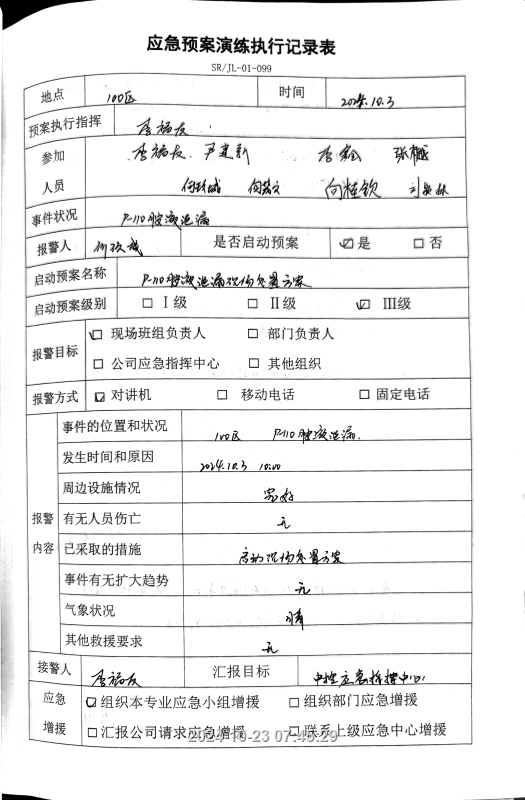 应急预案演练执行记录表
SR/JL-01-099
地点 100区 时间 2024.10.3
预案执行指挥 李福友
参加 李福友 尹建新 李鑫 张樾
人员 向桂钦
事件状况 P-110胺液泄漏
报警人 是否启动预案 ☑是 □否
启动预案名称 P-110胺液泄漏现场处置方案
启动预案级别 □Ⅰ级 □Ⅱ级 ☑Ⅲ级
☑ 现场班组负责人 □ 部门负责人
报警目标
□ 公司应急指挥中心 □ 其他组织
报警方式 ☑ 对讲机 □ 移动电话 □ 固定电话
事件的位置和状况 100区 P-110胺液泄漏.
发生时间和原因 2024.10.3 10:00
周边设施情况 完好
报警 有无人员伤亡 无
内容 已采取的措施 启动现场处置方案
事件有无扩大趋势 无
气象状况 晴
其他救援要求 无
接警人 李福友 汇报目标 中控应急指挥中心
应急 ☑组织本专业应急小组增援 □组织部门应急增援
增援 □汇报公司请求应急增援 □联系上级应急中心增援
2024-10-23 07:45:29